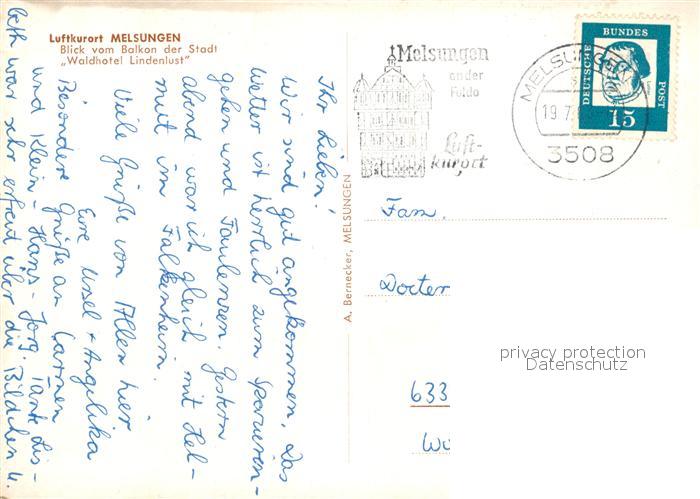 Luftkurort MELSUNGEN
Blick vom Balkon der Stadt
„Waldhotel Lindenlust"
Ihr Lieben!
Wir sind gut angekommen. Das
Wetter ist herrlich zum Spazieren-
gehen und Faulenzen. Gestern
abend war ich gleich mit Hel-
mut im Falkenheim.
Viele Grüße von Allen hier
Eure Ursel + Angelika
Besondere Grüße an Carmen
und Klein-Hans-Jörg. Tante Lis-
beth war sehr erfreut über die Bildchen u.
A. Bernecker, MELSUNGEN
Melsungen
an der
Fulda
Luft-
kurort
MELSUNGEN
19.7.
3508
DEUTSCHE BUNDES POST
15
Fam.
Docter
633
privacy protection
Datenschutz